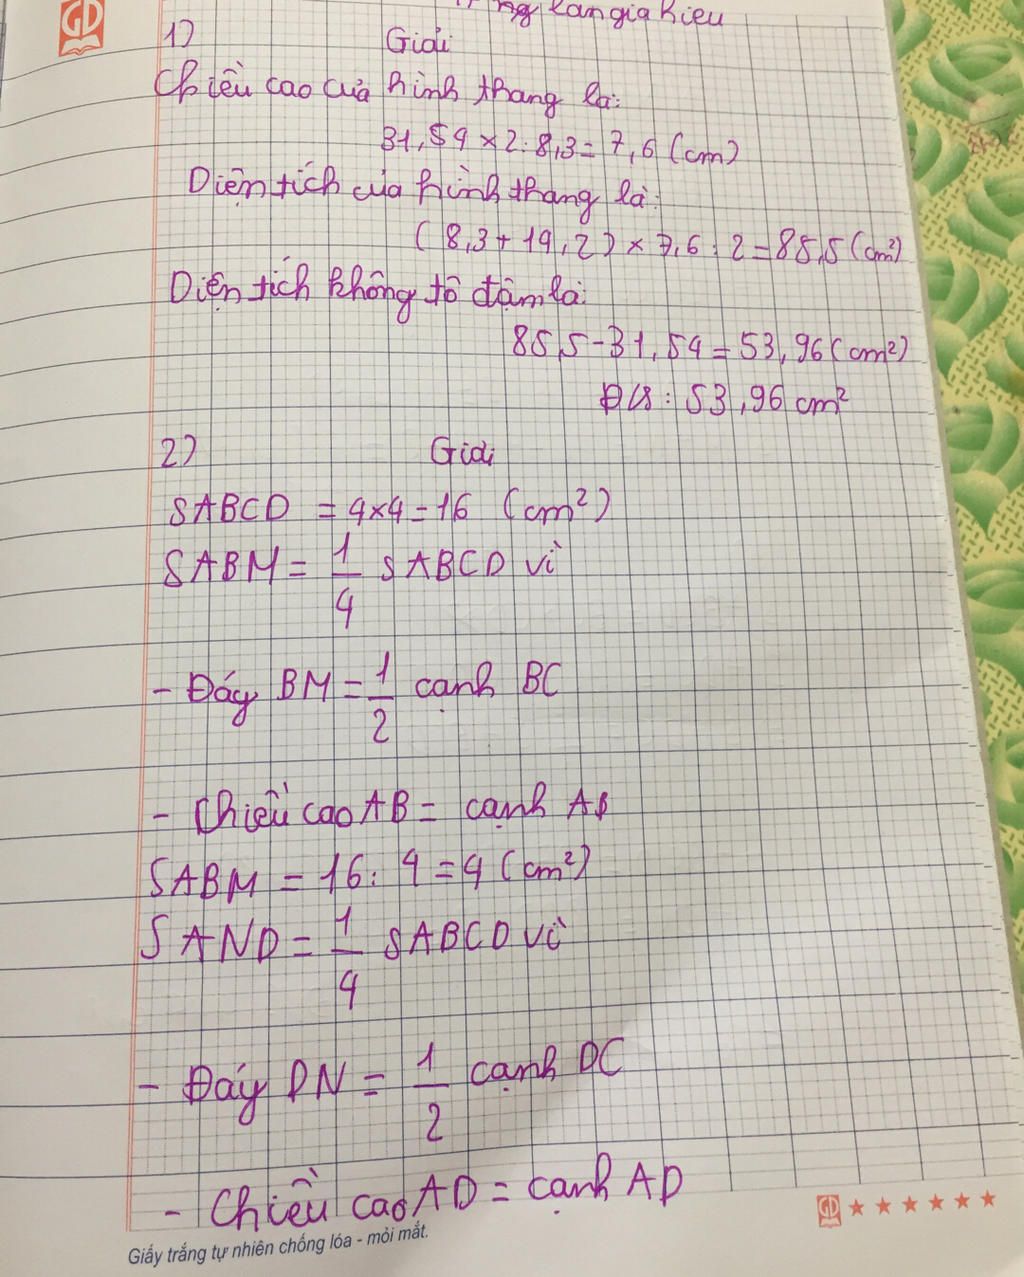 ng lan gia hiếu
GD
1)
Giải
Chiều cao của hình thang là:
31,54 × 2 : 8,3 = 7,6 (cm)
Diện tích của hình thang là:
(8,3 + 14,2) × 7,6 : 2 = 85,5 (cm²)
Diện tích không tô đậm là:
85,5 - 31,54 = 53,96 (cm²)
ĐS: 53,96 cm²
2)
Giải
SABCD = 4×4 = 16 (cm²)
SABM = 1/4 SABCD vì
- Đáy BM = 1/2 cạnh BC
- Chiều cao AB = cạnh AB
SABM = 16 : 4 = 4 (cm²)
SAND = 1/4 SABCD vì
- Đáy DN = 1/2 cạnh DC
- Chiều cao AD = cạnh AD
GD ★★★★★★
Giấy trắng tự nhiên chống lóa - mỏi mắt.